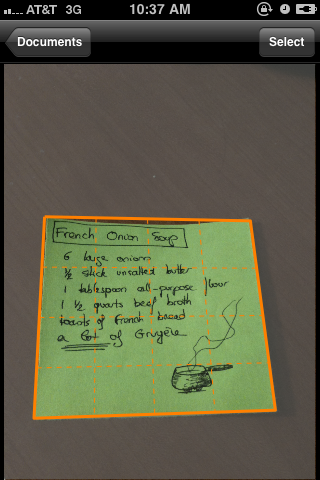 AT&T 3G 10:37 AM
Documents Select
French Onion Soup
6 large onions
½ stick unsalted butter
1 tablespoon all-purpose flour
1 ½ quarts beef broth
toasts of French bread
a lot of Gruyère